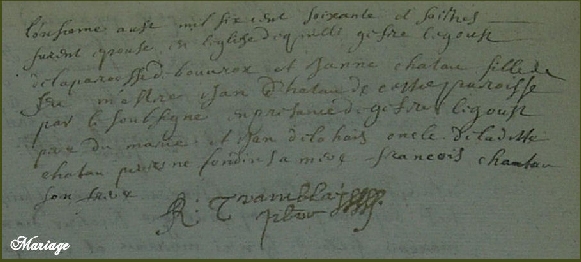 L'onsieme aust mil six cent soixante et
furent epouse en l'eglise de quelli gefre legoust
de la paroesse d bouvrox et Janne chatau fille de
feu maestre Jan Chatau de cette paroisse
par le soubsigne en presance de gefre legoust
pere du marie et Jan de la hais oncle de ladette
chatau perine sa mere francois chautau
son frere
R: Tramblais
pbre
Mariage